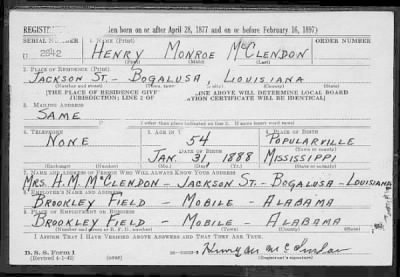 REGISTR (en born on or after April 28, 1877 and on or before February 16, 1897)
SERIAL NUMBER 1. NAME (Print) ORDER NUMBER
U 2842 HENRY MONROE McCLENDON
(First) (Middle) (Last)
2. PLACE OF RESIDENCE (Print)
JACKSON ST. - BOGALUSA, LOUISIANA
(Number and street) (Town, (State)
[THE PLACE OF RESIDENCE GIVE INE ABOVE WILL DETERMINE LOCAL BOARD
JURISDICTION; LINE 2 OF ATION CERTIFICATE WILL BE IDENTICAL]
3. MAILING ADDRESS
SAME
[Mailing address if other than place indicated on line 2. If same insert word same]
4. TELEPHONE 5. AGE IN YEARS 6. PLACE OF BIRTH
NONE 54 POPULARVILLE
DATE OF BIRTH (Town or county)
JAN. 31, 1888 MISSISSIPPI
(Exchange) (Number) (Mo.) (Day) (Yr.) (State or country)
7. NAME AND ADDRESS OF PERSON WHO WILL ALWAYS KNOW YOUR ADDRESS
MRS H.M. McCLENDON - JACKSON ST. - BOGALUSA - LOUISIANA
8. EMPLOYER'S NAME AND ADDRESS
BROOKLEY FIELD - MOBILE - ALABAMA
9. PLACE OF EMPLOYMENT OR BUSINESS
BROOKLEY FIELD - MOBILE - ALABAMA
(Number and street or R. F. D. number) (Town) (County) (State)
I AFFIRM THAT I HAVE VERIFIED ABOVE ANSWERS AND THAT THEY ARE TRUE.
D. S. S. Form 1
(Revised 4-1-42) (over) (Registrant's signature)